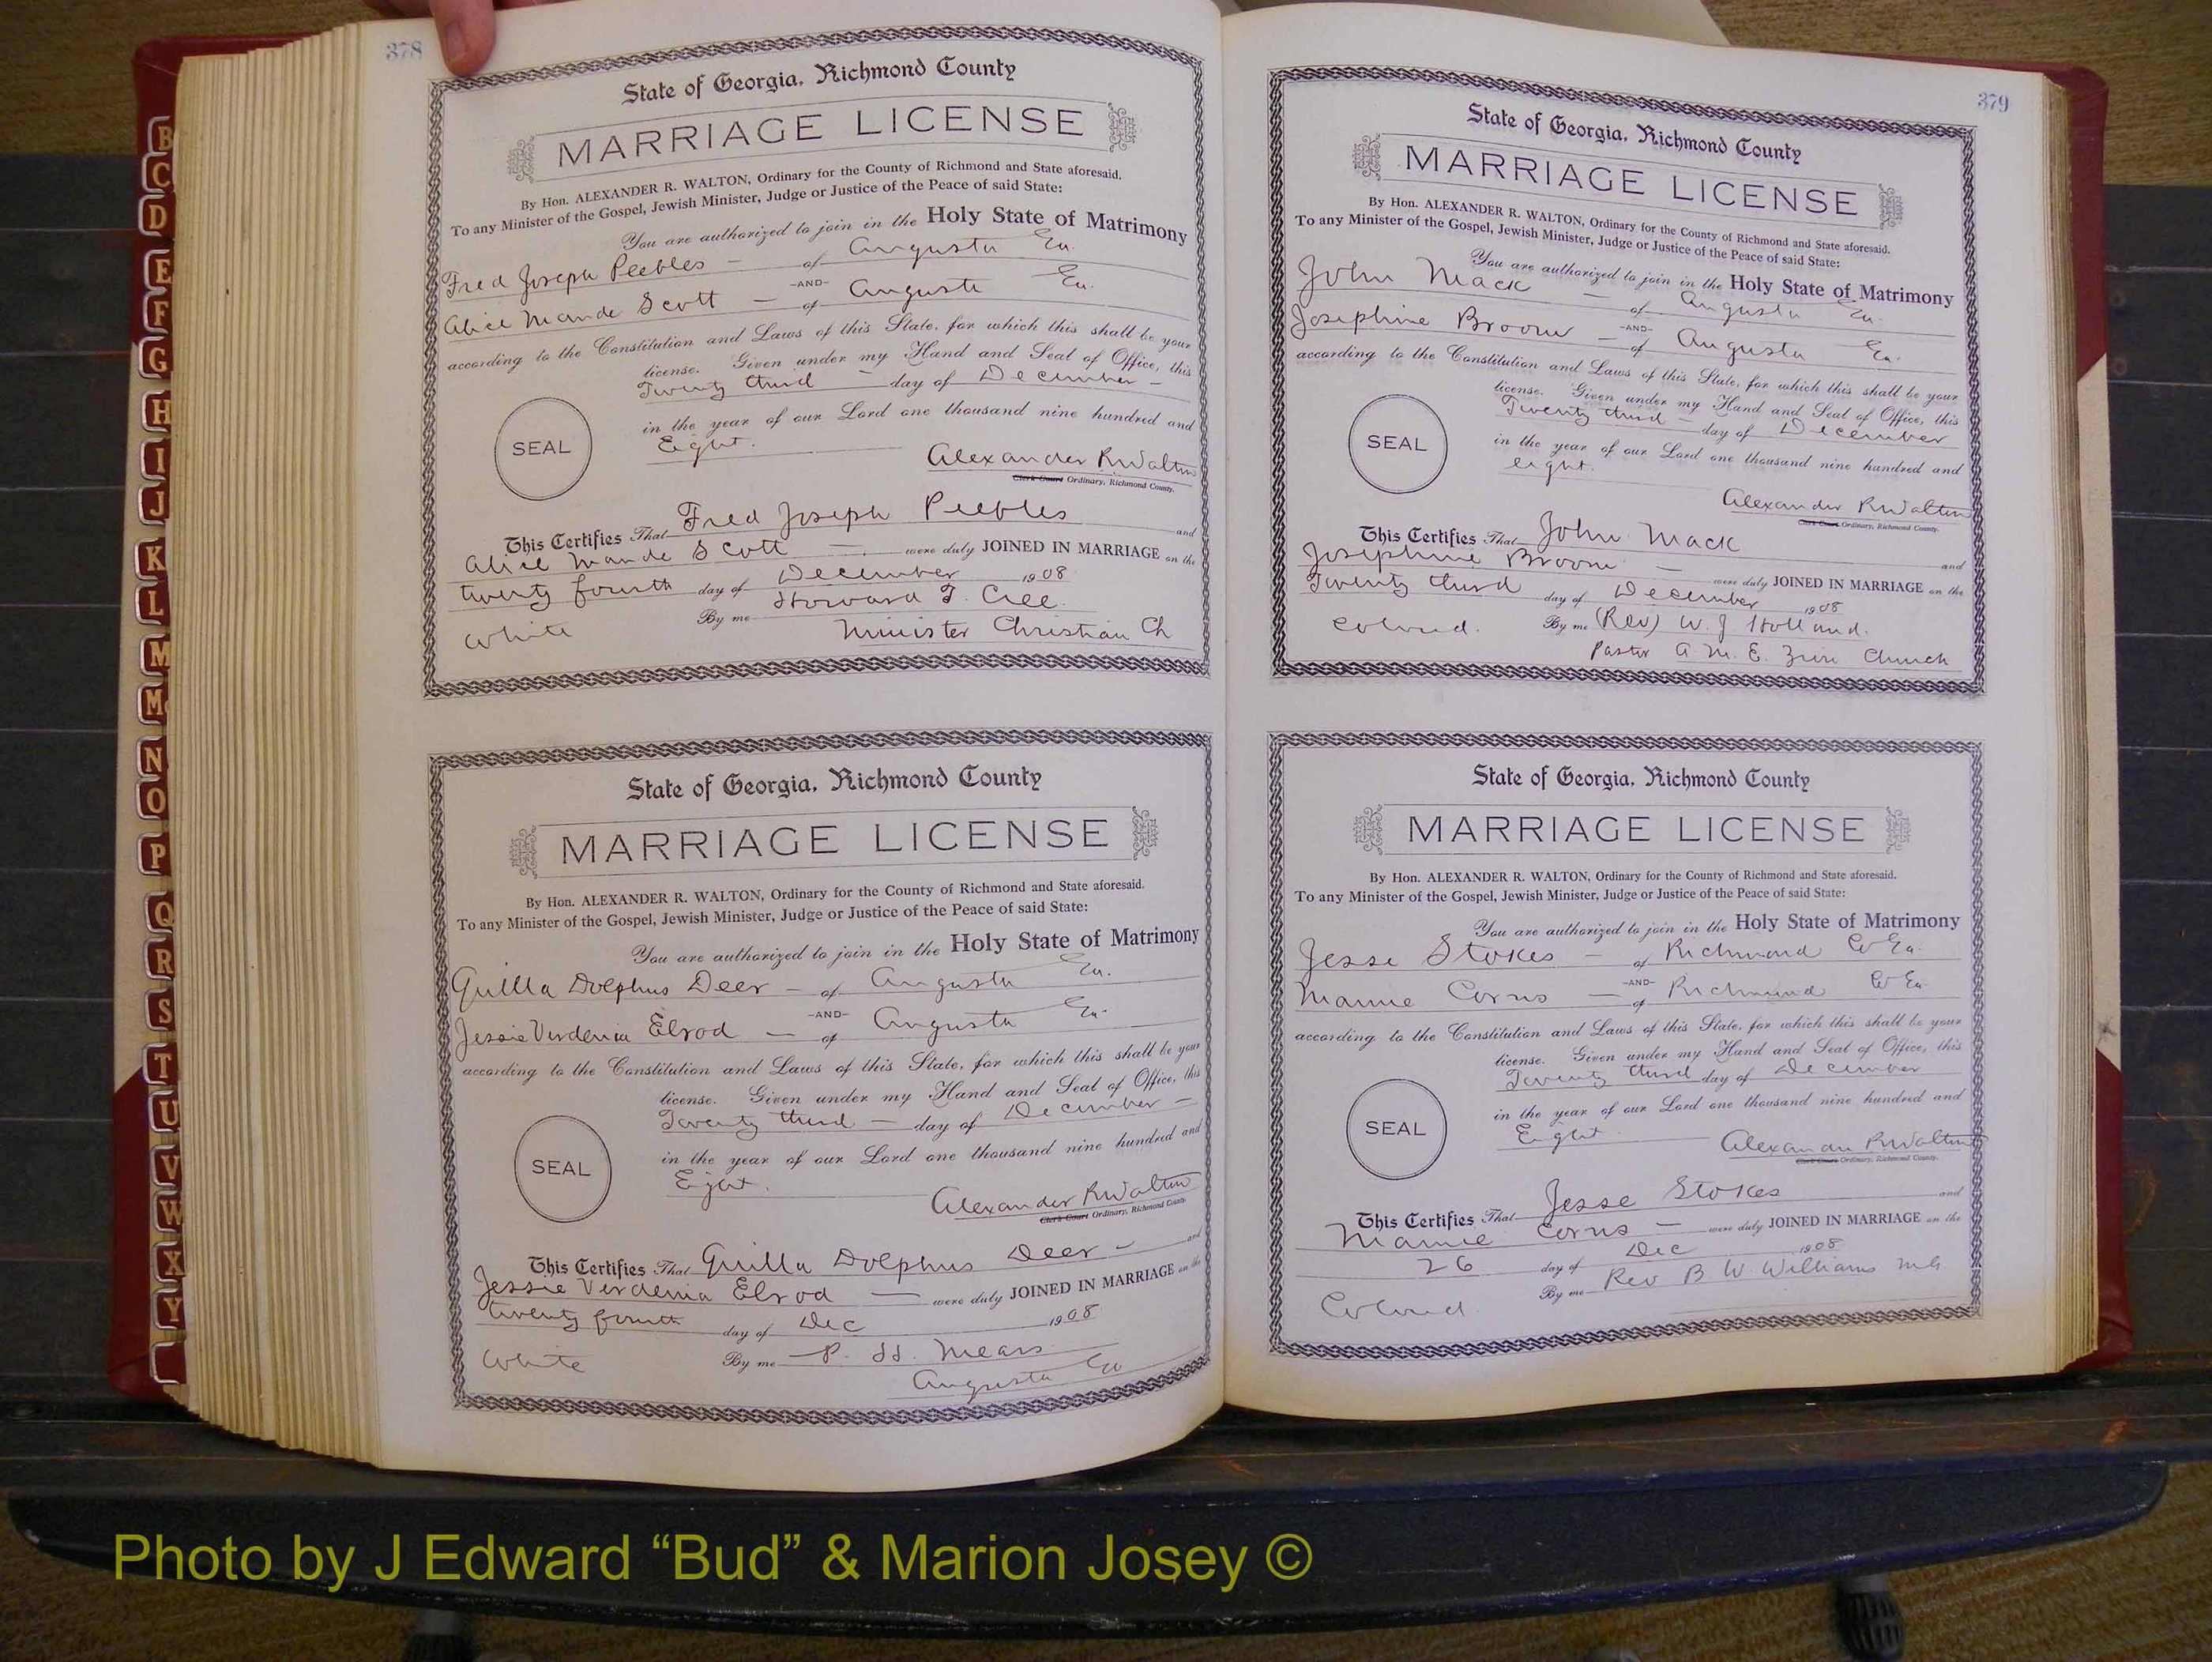 378
State of Georgia, Richmond County
MARRIAGE LICENSE
By Hon. ALEXANDER R. WALTON, Ordinary for the County of Richmond and State aforesaid.
To any Minister of the Gospel, Jewish Minister, Judge or Justice of the Peace of said State:
You are authorized to join in the Holy State of Matrimony
Fred Joseph Peebles - of Augusta Ga.
-AND-
Alice Maude Scott - of Augusta Ga.
according to the Constitution and Laws of this State, for which this shall be your
license. Given under my Hand and Seal of Office, this
Twenty third - day of December -
in the year of our Lord one thousand nine hundred and
SEAL
Eight.
Alexander R Walton
Clerk Court Ordinary, Richmond County.
This Certifies That Fred Joseph Peebles and
Alice Maude Scott - were duly JOINED IN MARRIAGE on the
twenty fourth day of December 1908
By me Howard T. Cree.
White Minister Christian Ch
State of Georgia, Richmond County
MARRIAGE LICENSE
By Hon. ALEXANDER R. WALTON, Ordinary for the County of Richmond and State aforesaid.
To any Minister of the Gospel, Jewish Minister, Judge or Justice of the Peace of said State:
You are authorized to join in the Holy State of Matrimony
Quilla Dolphus Deer - of Augusta Ga.
-AND-
Jessie Verdenia Elrod - of Augusta Ga.
according to the Constitution and Laws of this State, for which this shall be your
license. Given under my Hand and Seal of Office, this
Twenty third - day of December -
in the year of our Lord one thousand nine hundred and
SEAL
Eight.
Alexander R Walton
Clerk Court Ordinary, Richmond County.
This Certifies That Quilla Dolphus Deer - and
Jessie Verdenia Elrod - were duly JOINED IN MARRIAGE on the
twenty fourth day of Dec 1908
White By me P. H. Mears
Augusta Ga
379
State of Georgia, Richmond County
MARRIAGE LICENSE
By Hon. ALEXANDER R. WALTON, Ordinary for the County of Richmond and State aforesaid.
To any Minister of the Gospel, Jewish Minister, Judge or Justice of the Peace of said State:
You are authorized to join in the Holy State of Matrimony
John Mack - of Augusta Ga.
-AND-
Josephine Broom - of Augusta Ga.
according to the Constitution and Laws of this State, for which this shall be your
license. Given under my Hand and Seal of Office, this
Twenty third - day of December
in the year of our Lord one thousand nine hundred and
SEAL
eight.
Alexander R Walton
Clerk Court Ordinary, Richmond County.
This Certifies That John Mack and
Josephine Broom - were duly JOINED IN MARRIAGE on the
Twenty third day of December 1908
Colored. By me (Rev) W. J Holland.
Pastor A. M. E. Zion Church
State of Georgia, Richmond County
MARRIAGE LICENSE
By Hon. ALEXANDER R. WALTON, Ordinary for the County of Richmond and State aforesaid.
To any Minister of the Gospel, Jewish Minister, Judge or Justice of the Peace of said State:
You are authorized to join in the Holy State of Matrimony
Jesse Stokes - of Richmond Co Ga.
-AND-
Mamie Corns - of Richmond Co Ga
according to the Constitution and Laws of this State, for which this shall be your
license. Given under my Hand and Seal of Office, this
Twenty third day of December
in the year of our Lord one thousand nine hundred and
SEAL
Eight.
Alexander R Walton
Clerk Court Ordinary, Richmond County.
This Certifies That Jesse Stokes and
Mamie Corns - were duly JOINED IN MARRIAGE on the
26 day of Dec 1908
By me Rev B W Williams M G
Colored.
B
C
D
E
F
G
H
I
J
K
L
M
Mc
N
O
P
Q
R
S
T
U
V
W
X
Y
Photo by J Edward “Bud” & Marion Josey ©